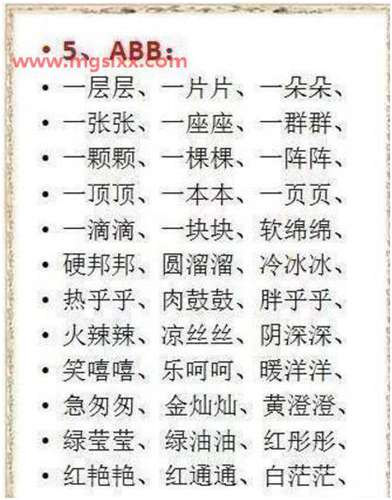 • 5、ABB：
www.mgsixx.com
• 一层层、一片片、一朵朵、
• 一张张、一座座、一群群、
• 一颗颗、一棵棵、一阵阵、
• 一顶顶、一本本、一页页、
• 一滴滴、一块块、软绵绵、
• 硬邦邦、圆溜溜、冷冰冰、
• 热乎乎、肉鼓鼓、胖乎乎、
• 火辣辣、凉丝丝、阴深深、
• 笑嘻嘻、乐呵呵、暖洋洋、
• 急匆匆、金灿灿、黄澄澄、
• 绿莹莹、绿油油、红彤彤、
• 红艳艳、红通通、白茫茫、